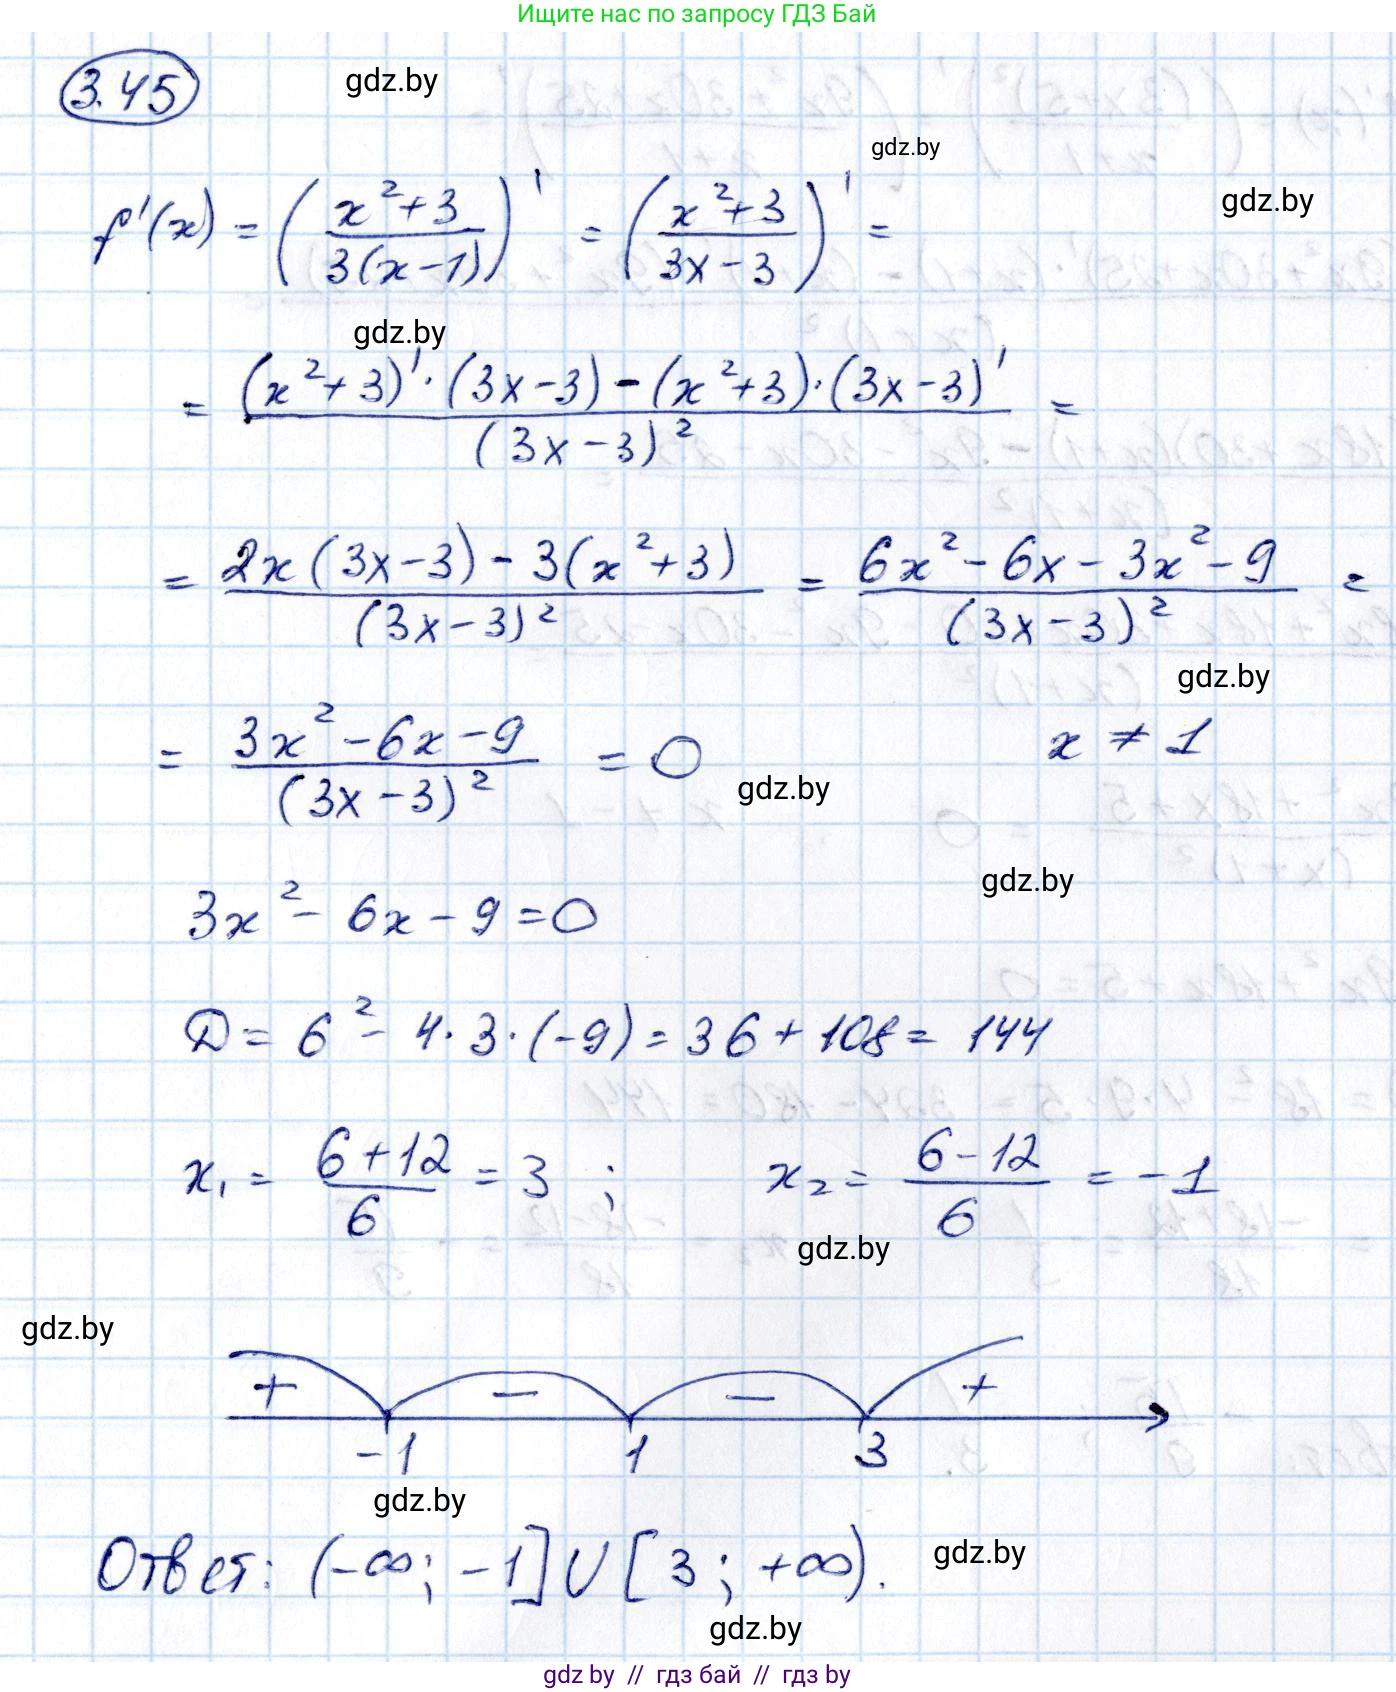 Ищите нас по запросу ГДЗ Бай
3.45
gdz.by
gdz.by
gdz.by
f'(x) = ( (x²+3) / (3(x-1)) )' = ( (x²+3) / (3x-3) )' =
gdz.by
= ((x²+3)'·(3x-3) - (x²+3)·(3x-3)') / (3x-3)² =
= (2x(3x-3) - 3(x²+3)) / (3x-3)² = (6x² - 6x - 3x² - 9) / (3x-3)² =
gdz.by
= (3x² - 6x - 9) / (3x-3)² = 0 x ≠ 1
gdz.by
gdz.by
3x² - 6x - 9 = 0
D = 6² - 4·3·(-9) = 36 + 108 = 144
x₁ = (6+12) / 6 = 3 ; x₂ = (6-12) / 6 = -1
gdz.by
gdz.by
+ - - +
-1 1 3
gdz.by
Ответ: (-∞; -1] U [3; +∞).
gdz.by
gdz.by
gdz by // гдз бай // гдз by